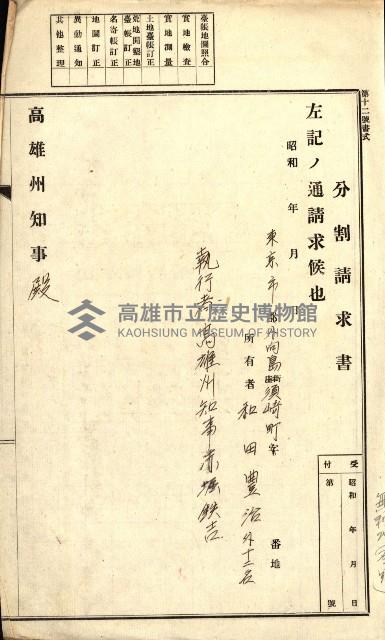 第十二號書式
臺帳地圖照合
實地檢査
實地測量
土地臺帳訂正
荒地開墾地臺帳訂正
名寄帳訂正
地圖訂正
異動通知
其他整理
分割請求書
左記ノ通請求候也
昭和 年 月
東京市 外向島 須崎町 番地
所有者 和田豊治外十二名
執行者高雄州知事赤堀鉄吉
高雄州知事殿
受付
昭和 年 月 日
第 號
高雄市立歷史博物館
KAOHSIUNG MUSEUM OF HISTORY